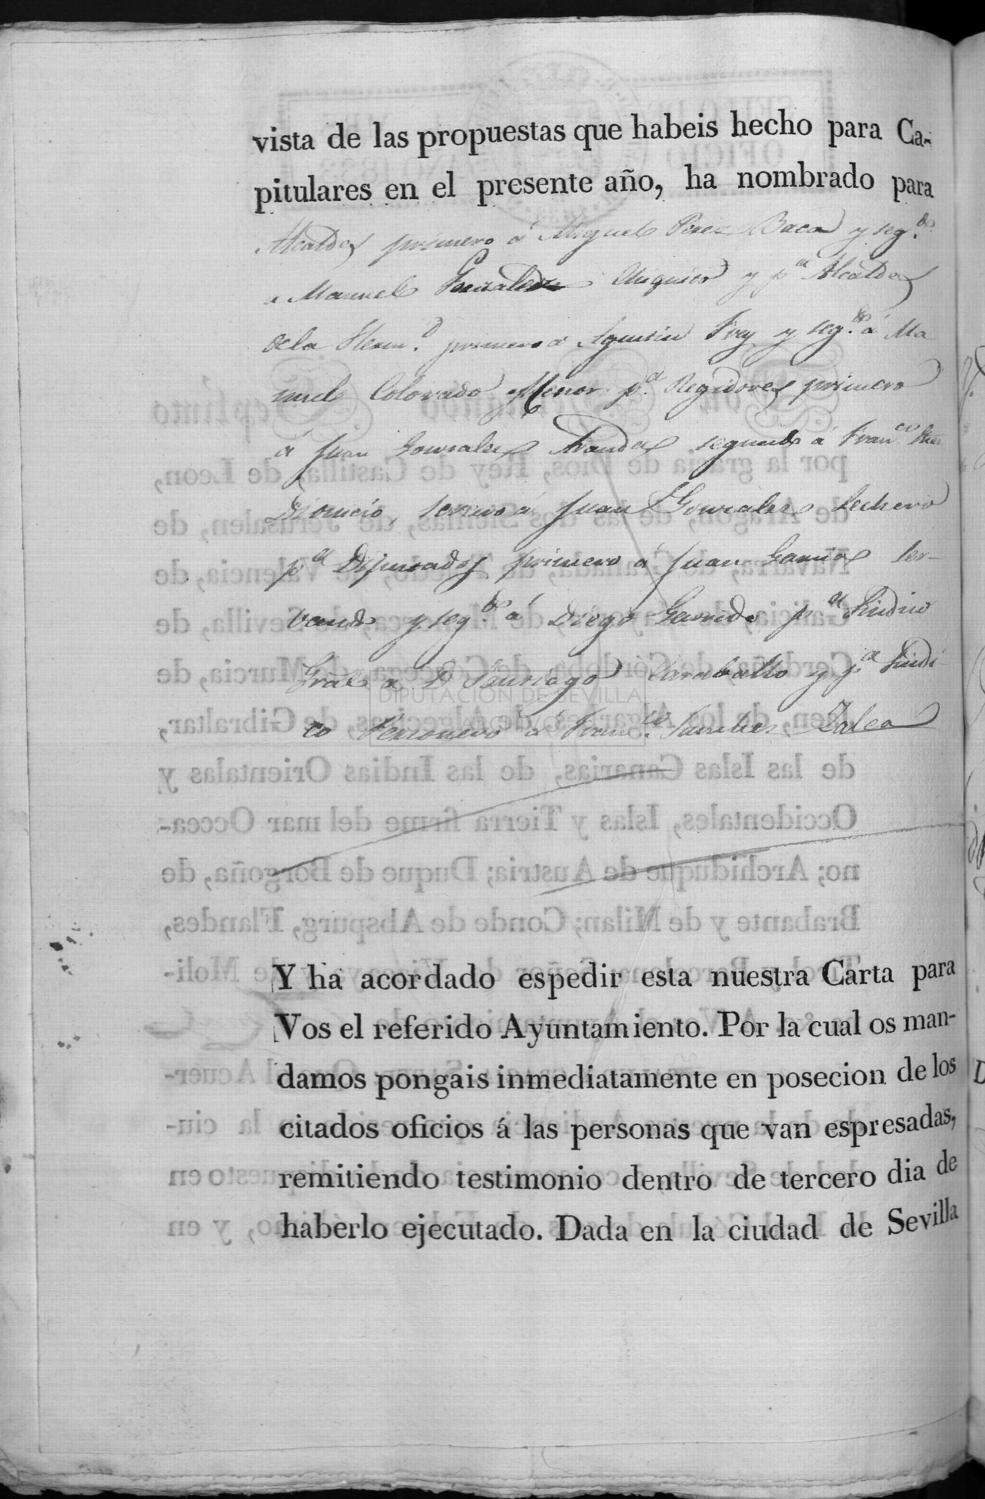 vista de las propuestas que habeis hecho para Ca-
pitulares en el presente año, ha nombrado para
Alcaldes primero á Miguel Perez Baca y seg.do
a Manuel y p.a Alcaldes
de la Herm.d primero a Agustin Frey y seg.do á Ma
nuel Colorado Menor p.a Regidores primero
á Juan Gonzales Aranda segundo á Fran.co
Dionicio, tercero á Juan Gonzales Lechero
p.a Diputados primero á Juan Garcia Ser-
vando y seg.do á Diego Garrido p.a Sindico
Gral a D. Santiago Caraballo y p.a Sindi
co Personero á Fran.co Sanchez Zalea
DIPUTACIÓN DE SEVILLA
Y ha acordado espedir esta nuestra Carta para
Vos el referido Ayuntamiento. Por la cual os man-
damos pongais inmediatamente en posecion de los
citados oficios á las personas que van espresadas,
remitiendo testimonio dentro de tercero dia de
haberlo ejecutado. Dada en la ciudad de Sevilla